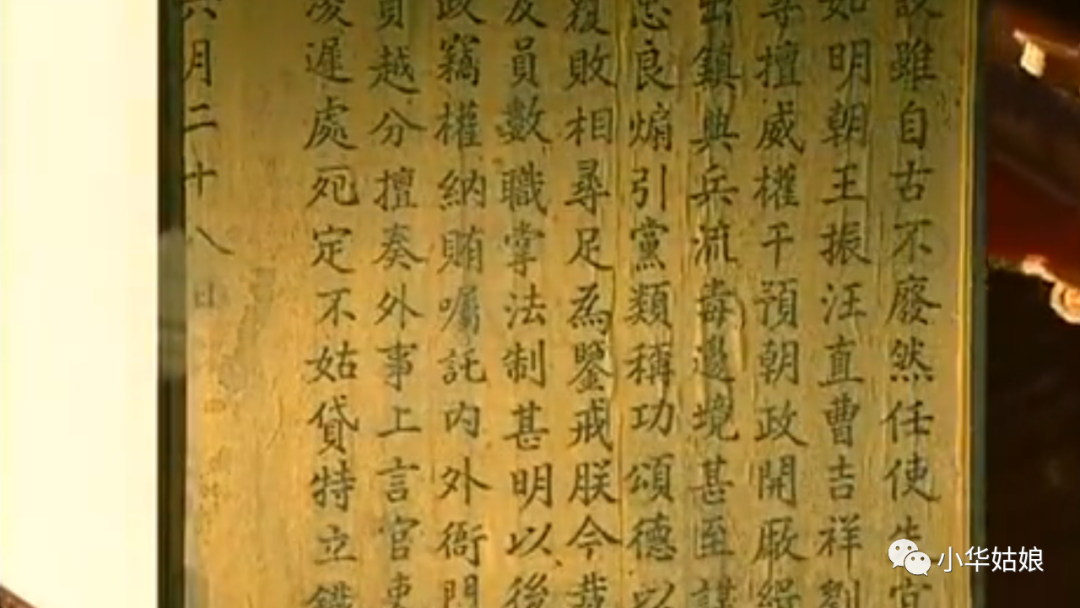 雖自古不廢然任使失宜
如明朝王振汪直曹吉祥劉
等擅威權干預朝政開厰緝
出鎮典兵流毒邊境甚至謀
忠良煽引黨類稱功頌德以
覆敗相尋足為鑒戒朕今裁
員數職掌法制甚明以後
政竊權納賄囑託內外衙門
員越分擅奏外事上言官吏
凌遲處死定不姑貸特立鐵
六月二十八日
小华姑娘